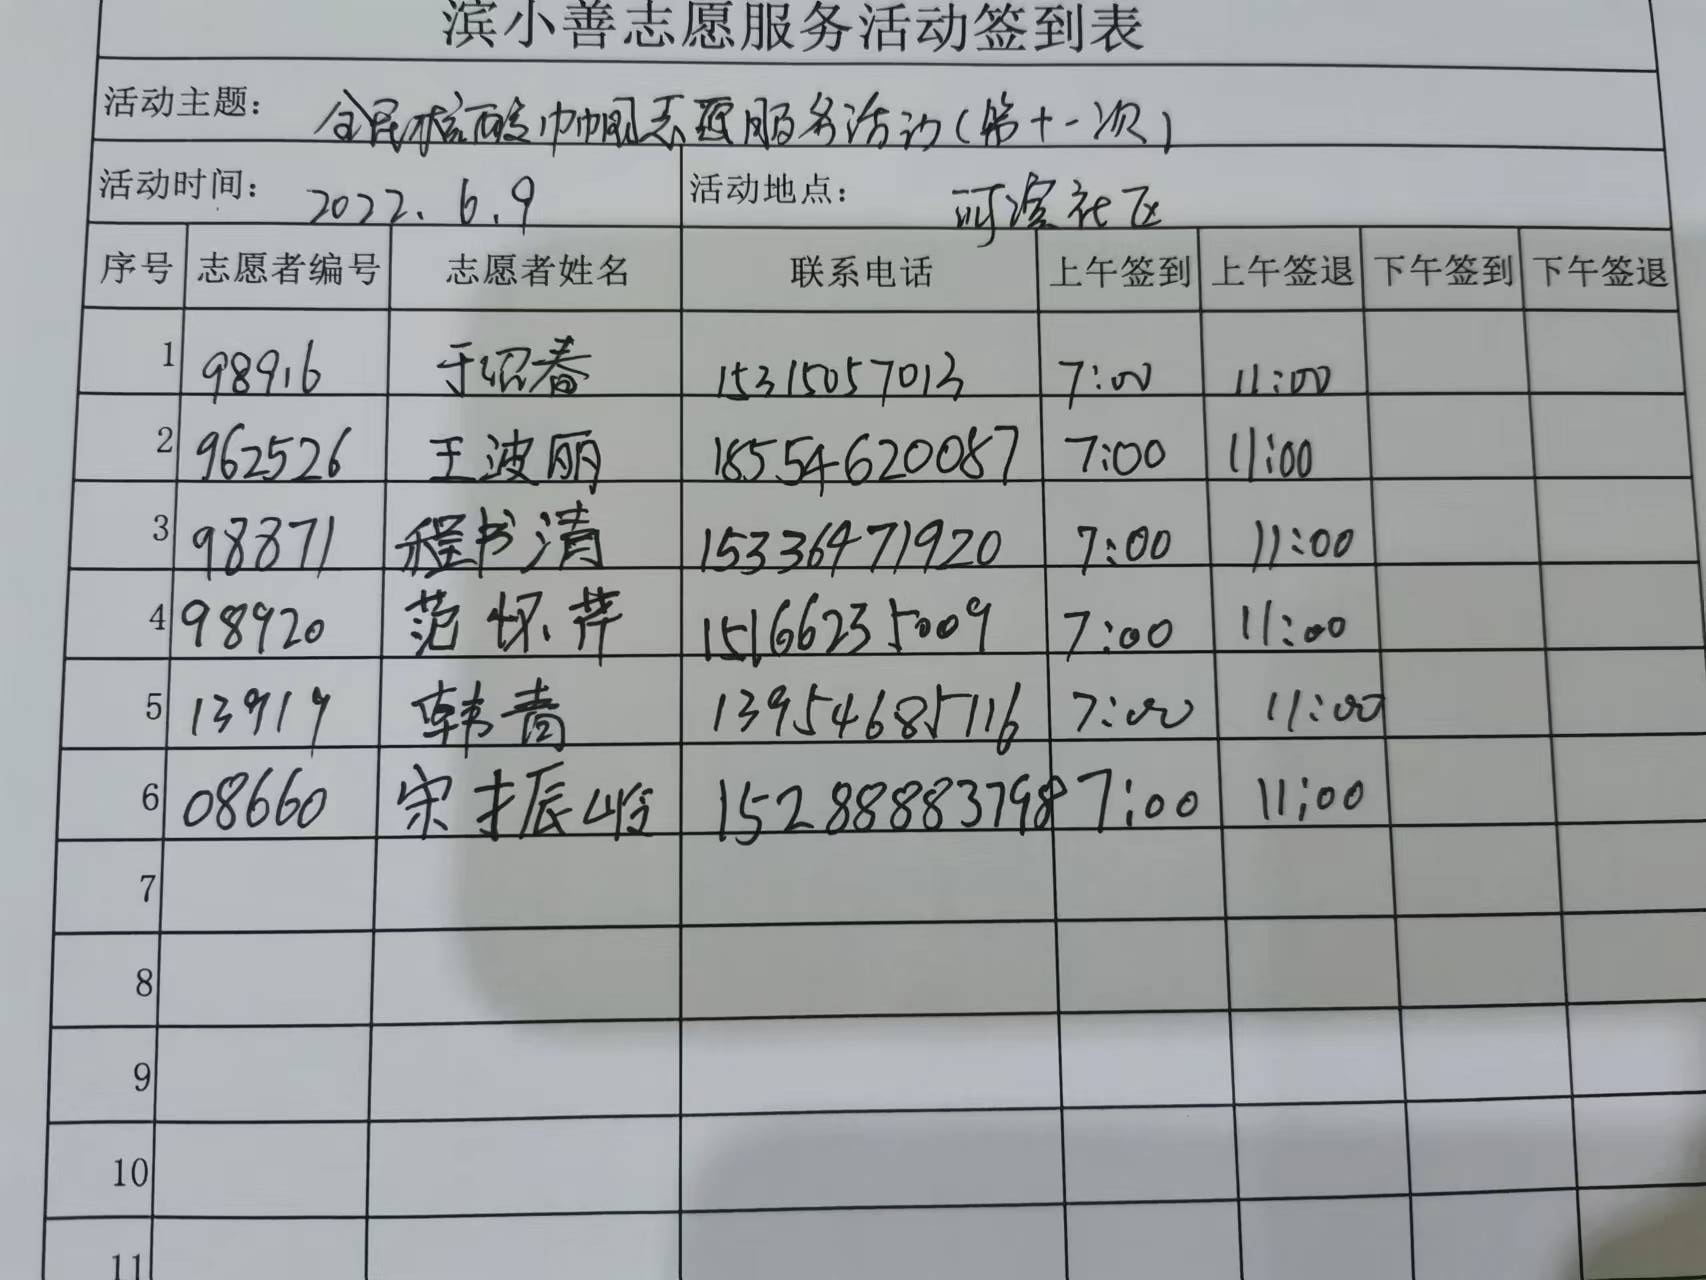 滨小善志愿服务活动签到表
活动主题： 全民核酸巾帼志愿服务活动(第十一次)
活动时间： 2022.6.9 活动地点： 河滨社区
序号 志愿者编号 志愿者姓名 联系电话 上午签到 上午签退 下午签到 下午签退
1 98916 于绍春 15315057013 7:00 11:00
2 962526 王波丽 18554620087 7:00 11:00
3 98871 程书清 15336471920 7:00 11:00
4 98920 范怀芹 15166235009 7:00 11:00
5 13919 韩青 13954685116 7:00 11:00
6 08660 宋振岭 15288883798 7:00 11:00
7
8
9
10
11